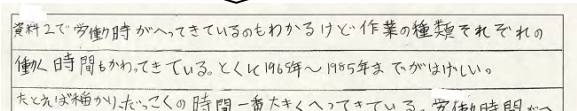 資料2で労働時がへってきているのもわかるけど作業の種類それぞれの
働く時間もかわってきている。とくに1965年～1985年までがはげしい。
たとえば稲かり、だっこくの時間一番大きくへってきている。労働時間がへ